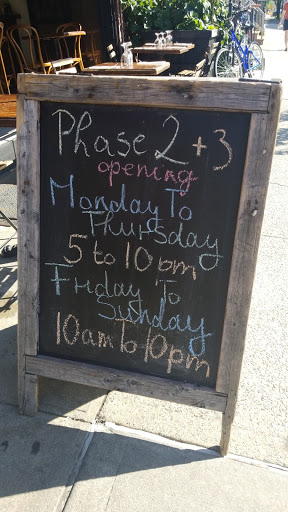 Phase 2+3
opening
Monday To
Thursday
5 to 10pm
Friday To
Sunday
10am to 10pm